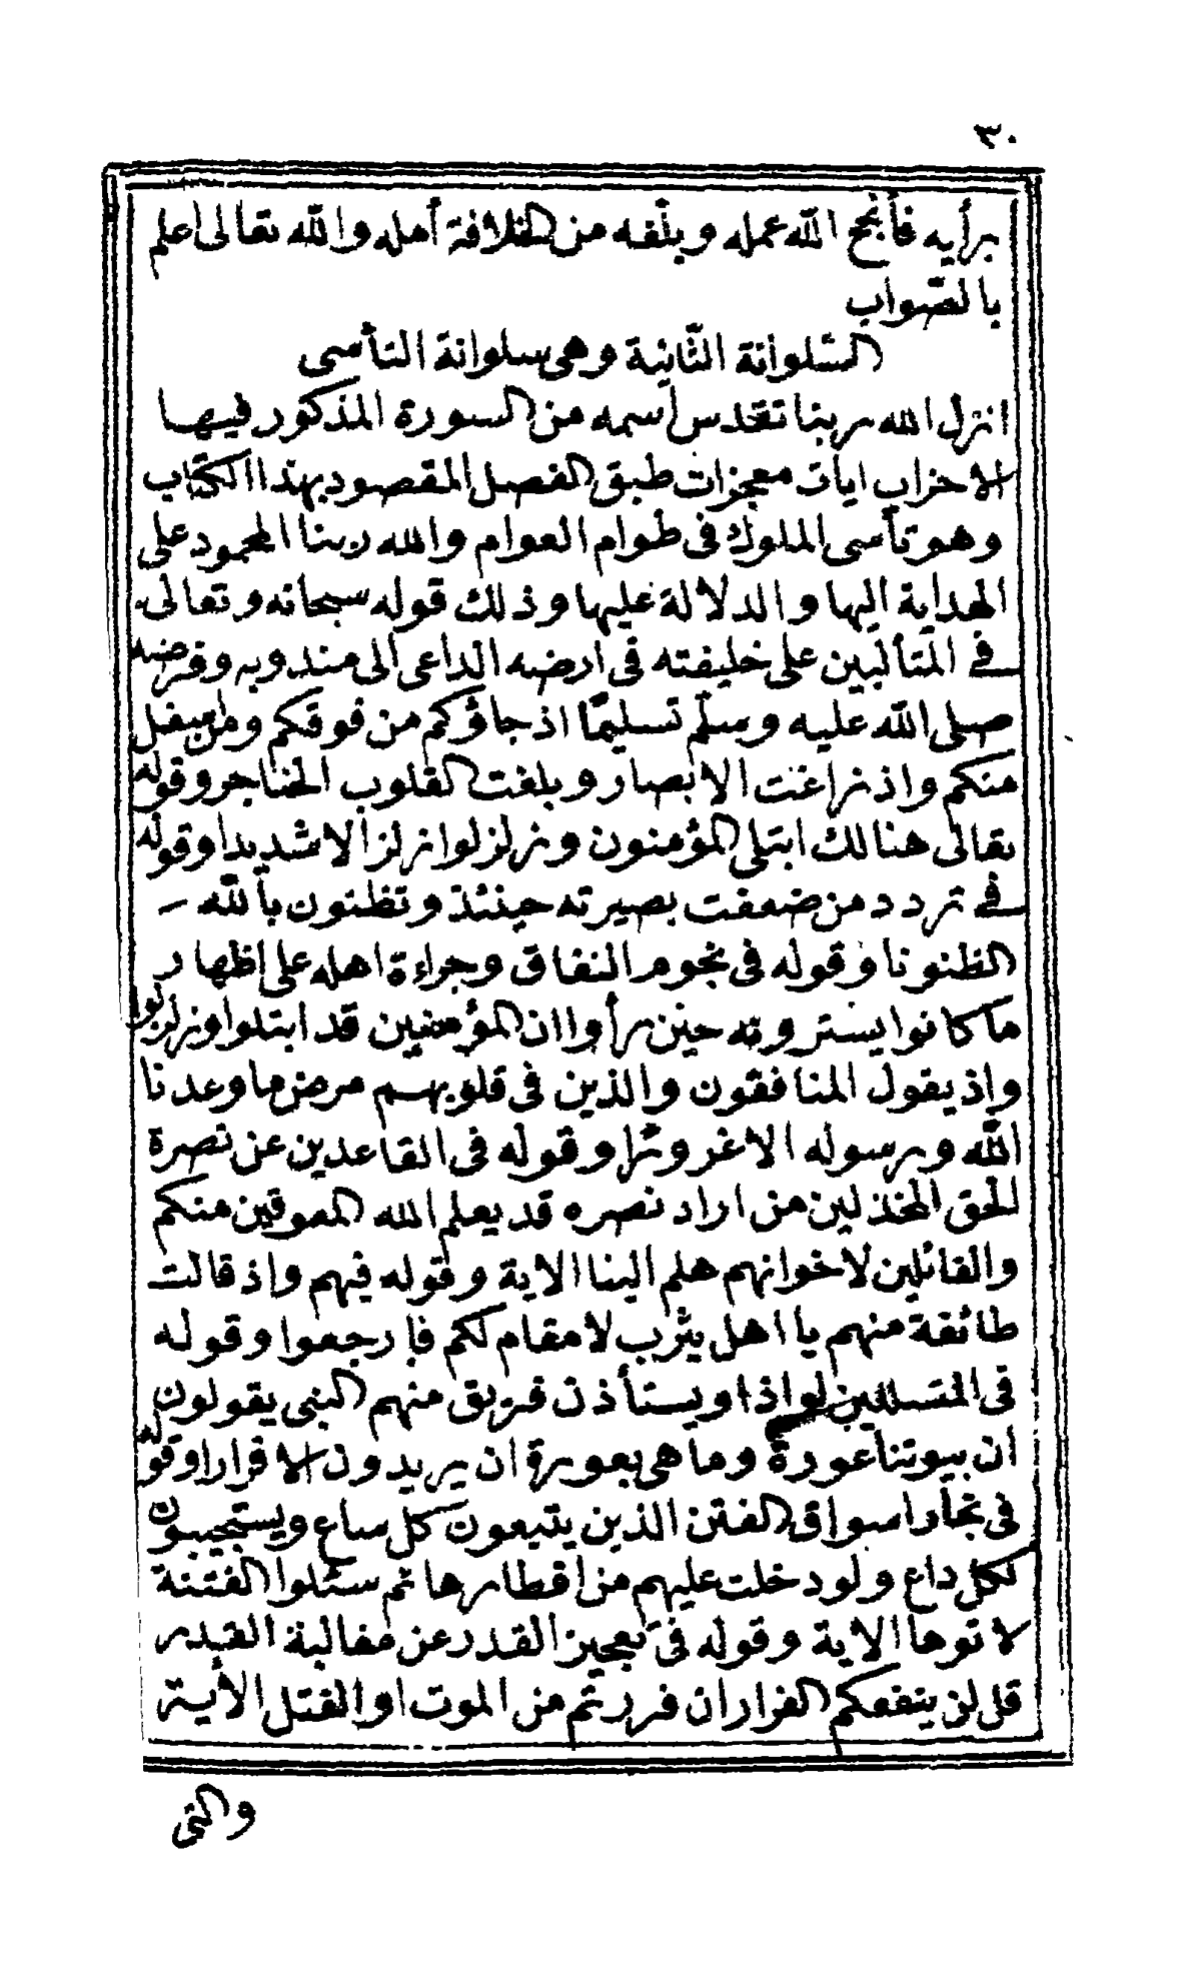 ٣٠
برأيه فأنجح الله عمله وبلغه من الخلافة أمله والله تعالى اعلم
بالصواب
السلوانة الثانية وهى سلوانة التأسى
انزل الله ربنا تقدس اسمه من السورة المذكور فيها
الاحزاب ايات معجزات طبق الفصل المقصود بهذا الكتاب
وهو تأسى الملوك فى طوام العوام والله ربنا المحمود على
الهداية اليها والدلالة عليها وذلك قوله سبحانه وتعالى
فى المتألبين على خليفته فى ارضه الداعى الى مندوبه وفرضه
صلى الله عليه وسلم تسليما اذ جاؤكم من فوقكم ومن اسفل
منكم واذ زاغت الابصار وبلغت القلوب الحناجر وقوله
تعالى هنالك ابتلى المؤمنون وزلزلوا زلزالا شديدا وقوله
فى تردد من ضعفت بصيرته حينئذ وتظنون بالله
الظنونا وقوله فى نجوم النفاق وجراءة اهله على اظهار
ما كانوا يسترونه حين رأوا ان المؤمنين قد ابتلوا وزلزلوا
واذ يقول المنافقون والذين فى قلوبهم مرض ما وعدنا
الله ورسوله الا غرورا وقوله فى القاعدين عن نصرة
الحق المخذلين من اراد نصره قد يعلم الله المعوقين منكم
والقائلين لاخوانهم هلم الينا الاية وقوله فيهم واذ قالت
طائفة منهم يا اهل يثرب لا مقام لكم فارجعوا وقوله
فى المتسللين لواذا ويستأذن فريق منهم النبى يقولون
ان بيوتنا عورة وما هى بعورة ان يريدون الا فرارا وقوله
فى تجار اسواق الفتن الذين يتبعون كل ساع ويستجيبون
لكل داع ولو دخلت عليهم من اقطارها ثم سئلوا الفتنة
لاتوها الاية وقوله فى تعجيز القدر عن مغالبة القدر
قل لن ينفعكم الفرار ان فررتم من الموت او القتل الأية
والتى